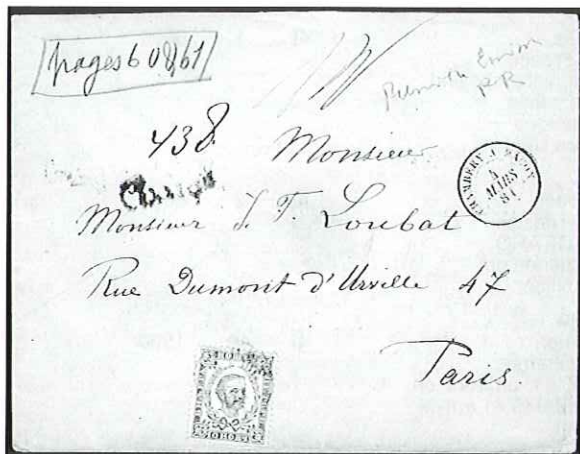 pages 60 & 61
Première Emission
RR
438
Monsieur
CHAMBERY A MACON
4
MARS
81
Chargé
Monsieur J. F. Loubat
Rue Dumont d'Urville 47
Paris.